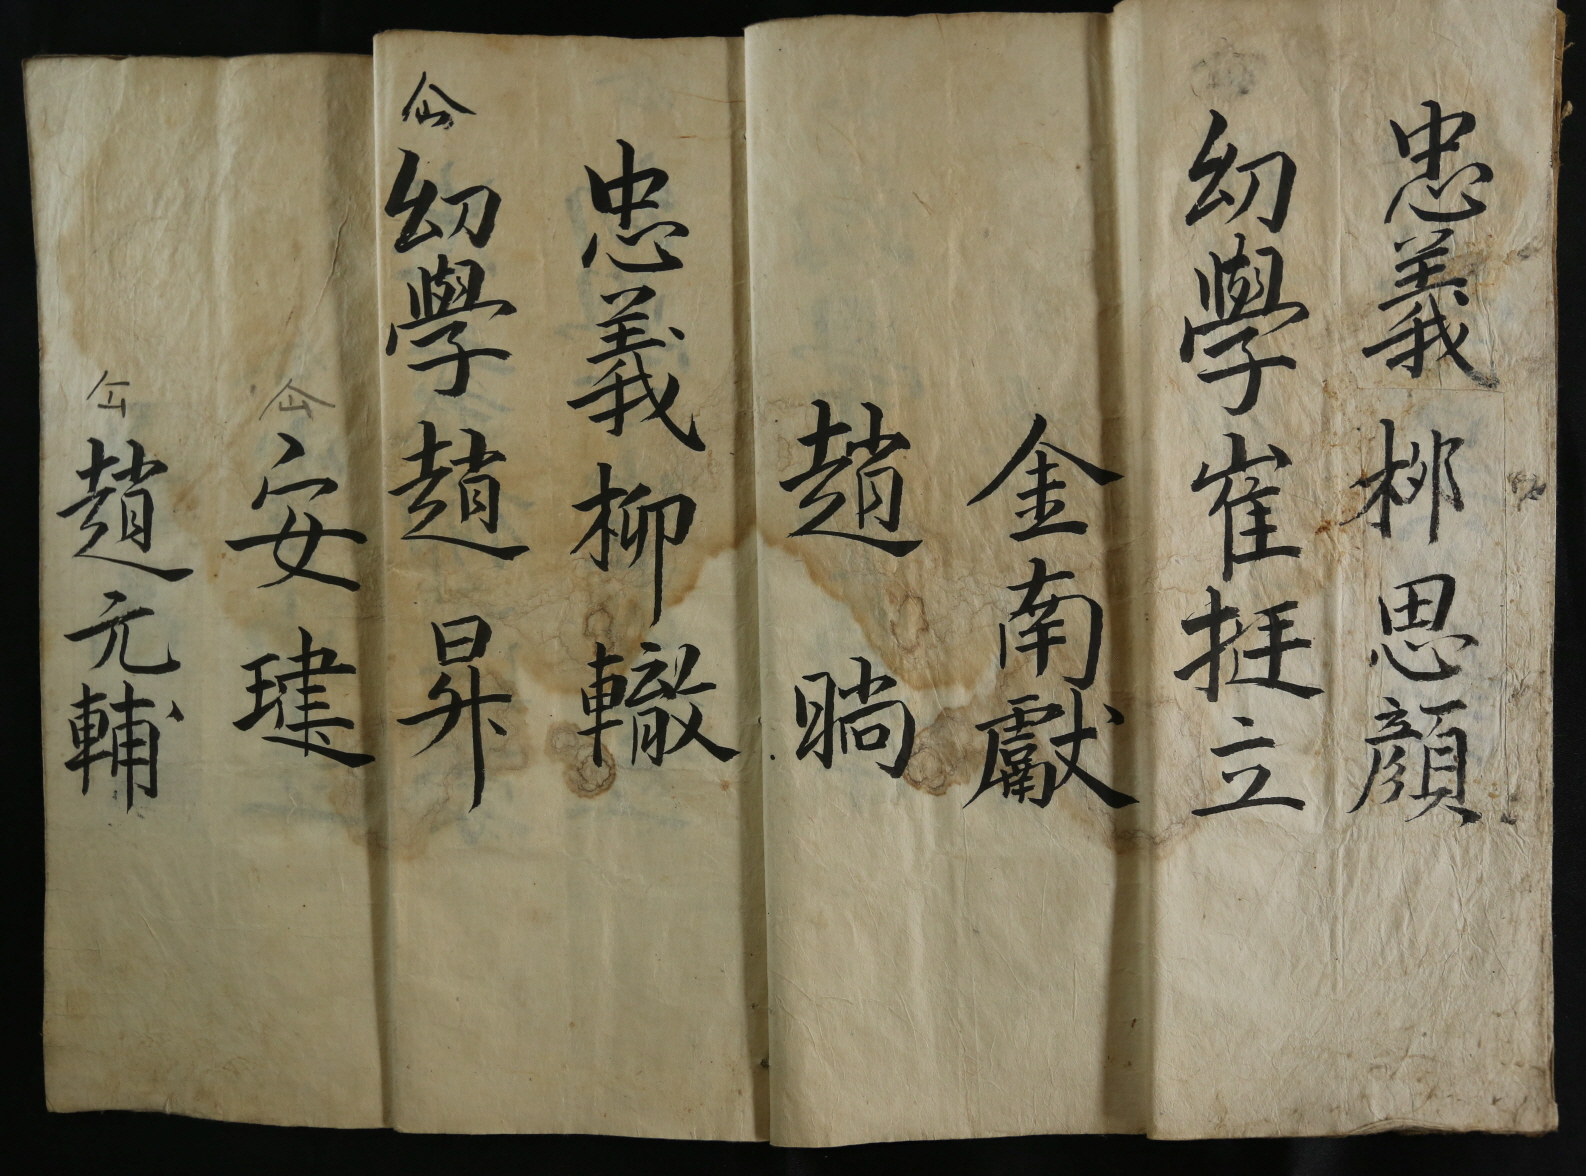 忠義柳思顔
幼學崔挺立
金南獻
趙䠀
忠義柳轍
幼學趙昇
安
趙元輔